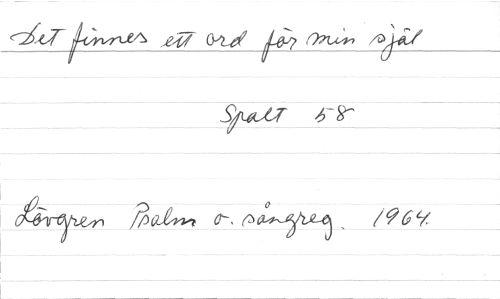 Det finnes ett ord för min själ
Spalt 58
Lövgren Psalm o. sångreg. 1964.